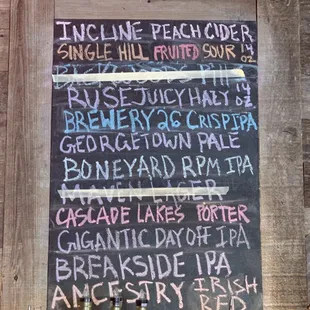 INCLINE PEACH CIDER
SINGLE HILL FRUITED SOUR 14 OZ
RUSE JUICY HAZY 14 OZ
BREWERY 26 CRISP IPA
GEORGETOWN PALE
BONEYARD RPM IPA
MAVEN LAGER
CASCADE LAKES PORTER
GIGANTIC DAY OFF IPA
BREAKSIDE IPA
ANCESTRY IRISH RED